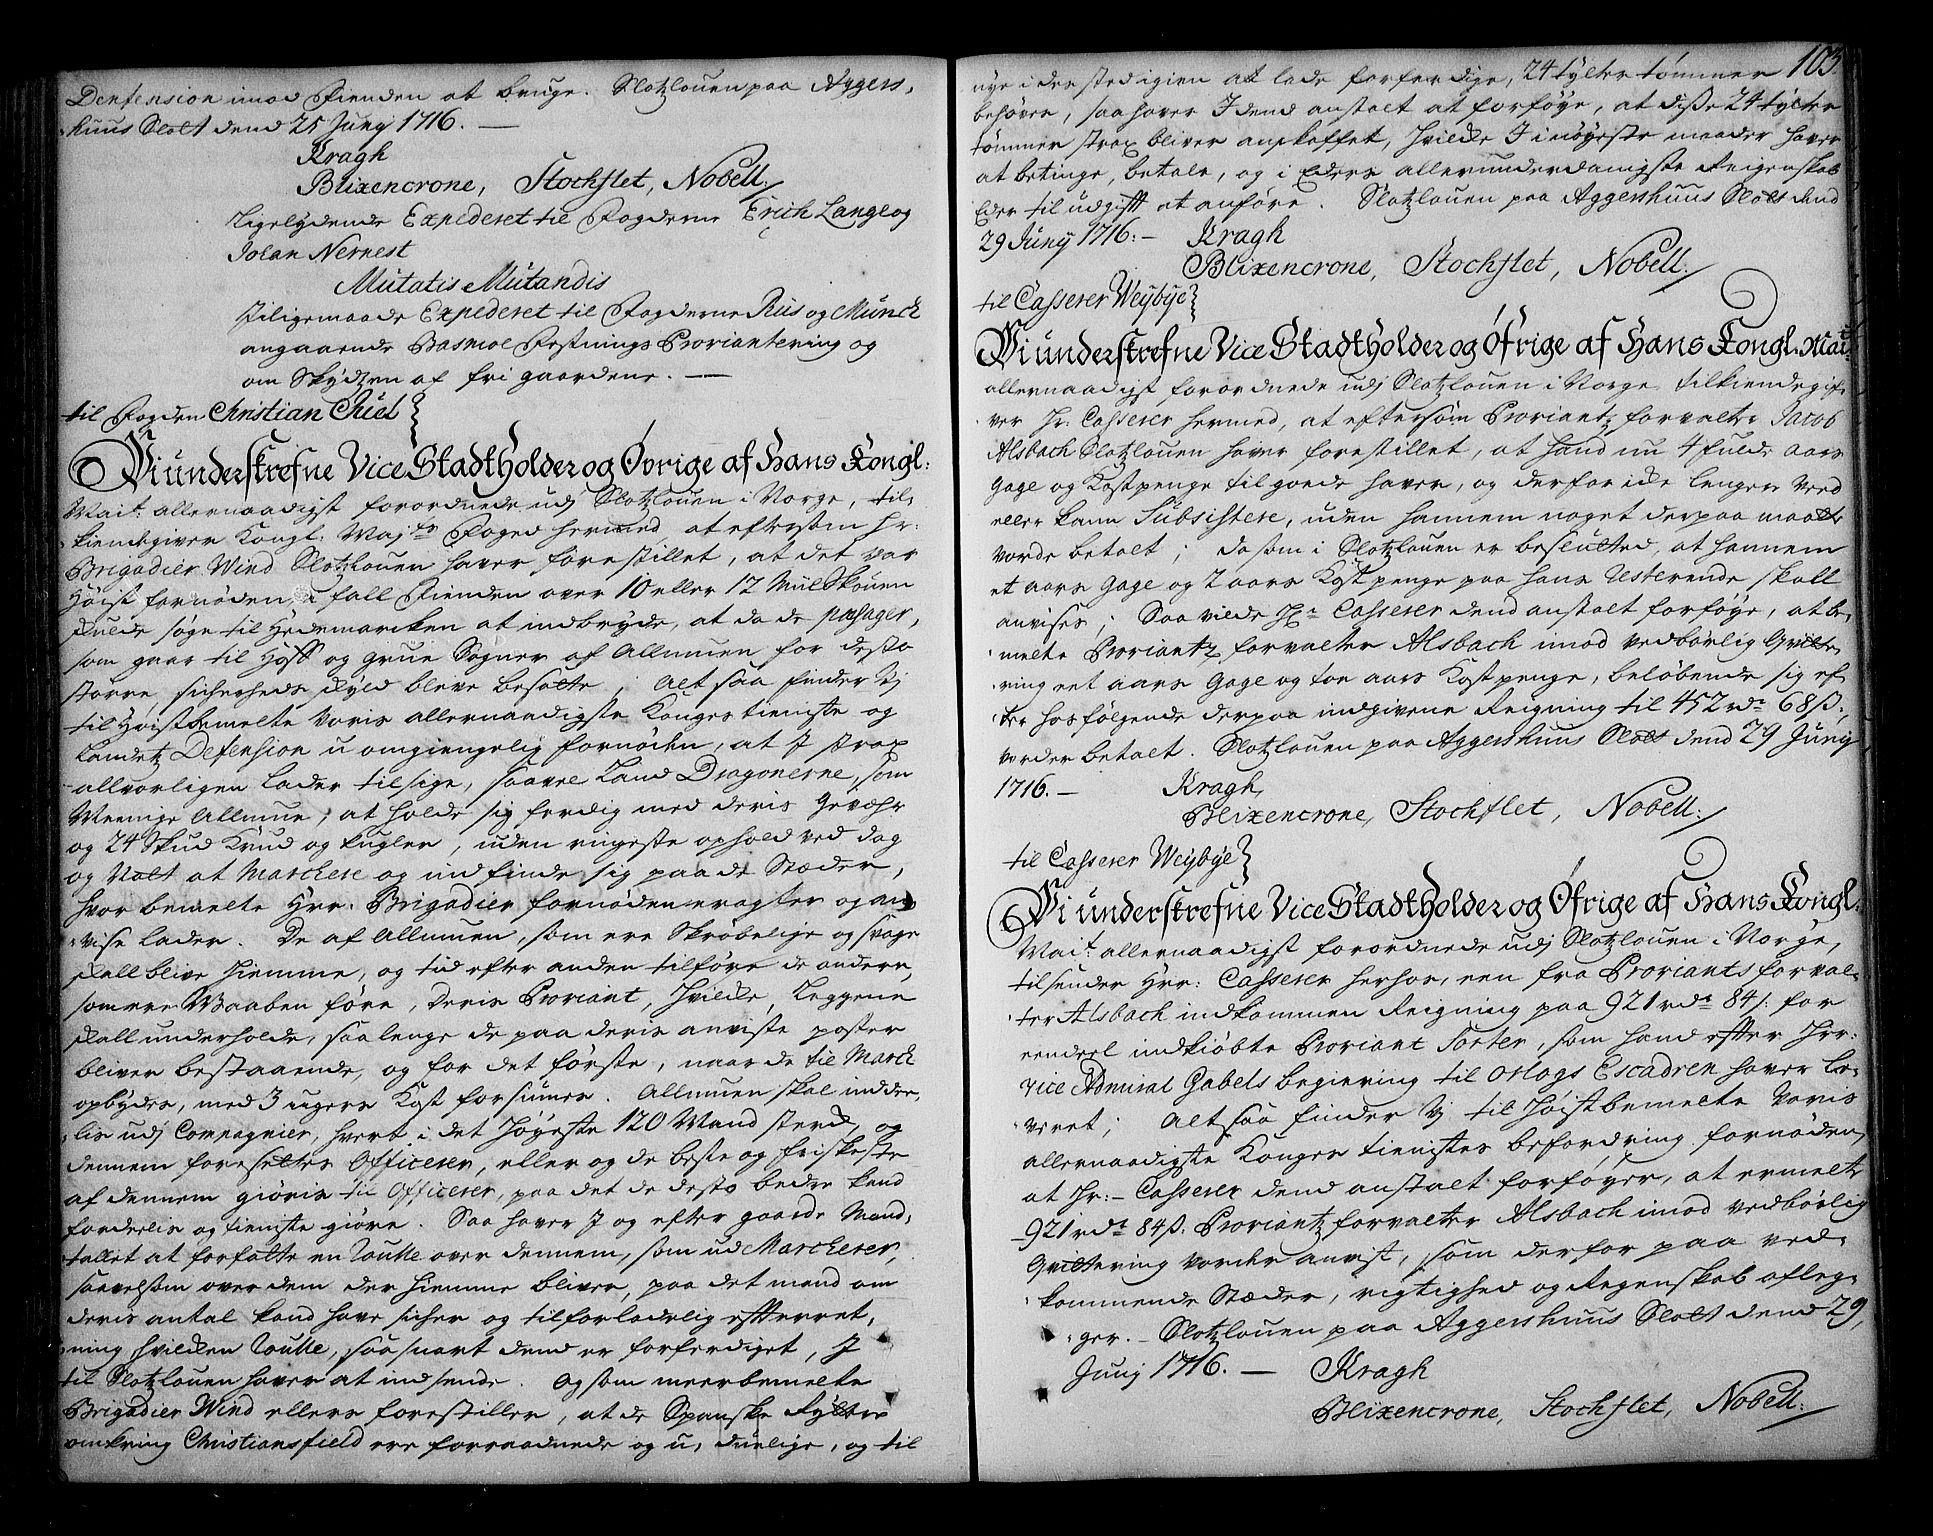 Denfension imod Fienden at bruge. Slotzlouen paa Aggers,
huus Slott dend 25 Juny 1716. —
Kragh
Blixencrone, Stochflet, Nobell./
Ligelydende Expederet til Fogderne Erich Lange og
Johan Nernest
Mutatis Mutandis
Iliigemaade Expederet til Fogderne Rus og Munch
angaaende Basmoe Festnings Proviantering og
om Skydzen af fri gaardene. —
til Fogden Christian Juel
Vi underskrefne Vice Stadtholder og Øvrige af Hans Kongl:
Mait: allernaadigst forordnede udj Slotzlouen i Norge, til,
kiendegiver Kongl: Majts Foged hermed, at eftersom Hr:
Brigadier Wind Slotzlouen haver forestillet, at det var
Høist fornøden, i fall Fienden over 10 eller 12 Miil Skouen
skulde søge til Hedemarcken at indbryde, at da de passager,
som gaar til Hoff og Grue Sogner af Allmuen for desto
større sicherheds skyld bleve besatte; Alt saa finder Vj
til Høistbemelte Voris allernaadigste Konges tieniste og
Landetz Defension u omgiengelig fornøden, at I strax
allvorligen lader tilsige, saavel Land Dragonerne, som
Meenige Allmue, at holde sig ferdig med deris Gevæhr
og 24 Skud Krud og Kugler, uden ringeste ophold ved dag
og Natt at Marchere og indfinde sig paa de Stæder,
hvor bemelte Hrr. Brigadier fornøden eragter og an,
vise lader. De af Allmuen, som ere Skrøbelige og svage
skall blive hiemme, og tid efter anden tilføre de andre,
som ere Waaben føre, deris Proviant, hvilke Leggene
skall underholde, saa lenge de paa deris anviste poster
bliver bestaaende, og for det første, naar de til March
opbydes, med 3 ugers Kost forsiunes. Allmuen skal inddee,
lis udj Compagnier, hvert i det Høyeste 120 Mand sterk, og
dennem foresettes Officerer, eller og de beste og friskeste
af dennem giøris til Officerer, paa det de desto bedre kand
forderlis og tieniste giøre. Saa haver I og efter gaarde Mand,
tallet at forfatte en Roulle over dennem, som ud Marcherer,
saavelsom over dem der hiemme bliver, paa det mand om
deris antal kand have sicher og tilforladelig efterret,
ning hvilken Roulle, saa snart dend er forferdiget, I
til Slotzlouen haver at indsende. Og som meerbemelte
Brigadier Wind ellers forestiller, at de Spanske Rytter
omkring Christiansfield ere forraadnede og u, duelige, og til
103.
nye i dess sted igien at lade forferdige, 24 tylter tømmer
behøves, saa haver I dend anstalt at forføye, at disse 24 tylter
tømmer strax bliver anskaffet, hvilke I i nøyeste maader haver
at betinge, betale, og i Eders allerunderdanigste Reigenskab
Eder til udgifft at anføre. Slotzlouen paa Aggershuus Slott dend
29 Juny 1716: — Kragh
Blixencrone, Stochflet, Nobell./
til Casserer Weybye
Vi underskrefne Vice Stadtholder og Øfrige af Hans Kongl. Mai:
allernaadigst forordnede udj Slotzlouen i Norge tilkiendegif,
ver Hr. Casserer hermed, at eftersom Proviantz forvalter Jacob
Alsbach Slotzlouen haver forestillet, at hand nu 4 fulde aars
Gage og Kostpenge til gode haver, og derfor icke lenger veed
eller kann Subsistere, uden hannem noget derpaa maatte
vorde betalt; da som i Slotzlouen er besluttet, at hannem
et aars Gage og 2 aars Kostpenge paa hans Resterende skall
anvises; Saa vilde Hr. Casserer dend anstalt forføye, at be,
melte Proviantz forvalter Alsbach imod vedbørlig Qvitte,
ring eet aars Gage og toe aars Kostpenge, beløbende sig ef,
ter hosfølgende derpaa indgivene Reigning til 452 rdr 68 ß,
vorder betalt. Slotzlouen paa Aggershuus Slott dend 29 Juny
1716. — Kragh,
Blixencrone, Stochflet, Nobell./
til Casserer Weybye
Vi underskrefne Vice Stadtholder og Øfrige af Hans Kongl.
Mait: allernaadigst forordnede udj Slotzlouen i Norge,
tilsender Hrr: Casserer herhos, een fra Proviants forval,
ter Alsbach indkommen Reigning paa 921 rdr 84 ß: for
eendeel indkiøbte Proviant Sorter, som hand efter Hrr:
vice Admiral Gabels begiering til Orlogs Escadren haver le,
veret; Alt saa finder Vj til Høistbemelte Voris
allernaadigste Konges tienistes befordring fornøden,
at Hr: — Casserer dend anstalt forføyer, at ermelte
921 rdr 84 ß. Proviantz forvalter Alsbach imod vedbørlig
Qvittering vorder anvist, som derfor paa ved,
kommende Stæder, rigtighed og Regenskab afleg,
ger. — Slotzlouen paa Aggershuus Slott dend 29,
Junij 1716. — Kragh
Blixencrone, Stochflet, Nobell./